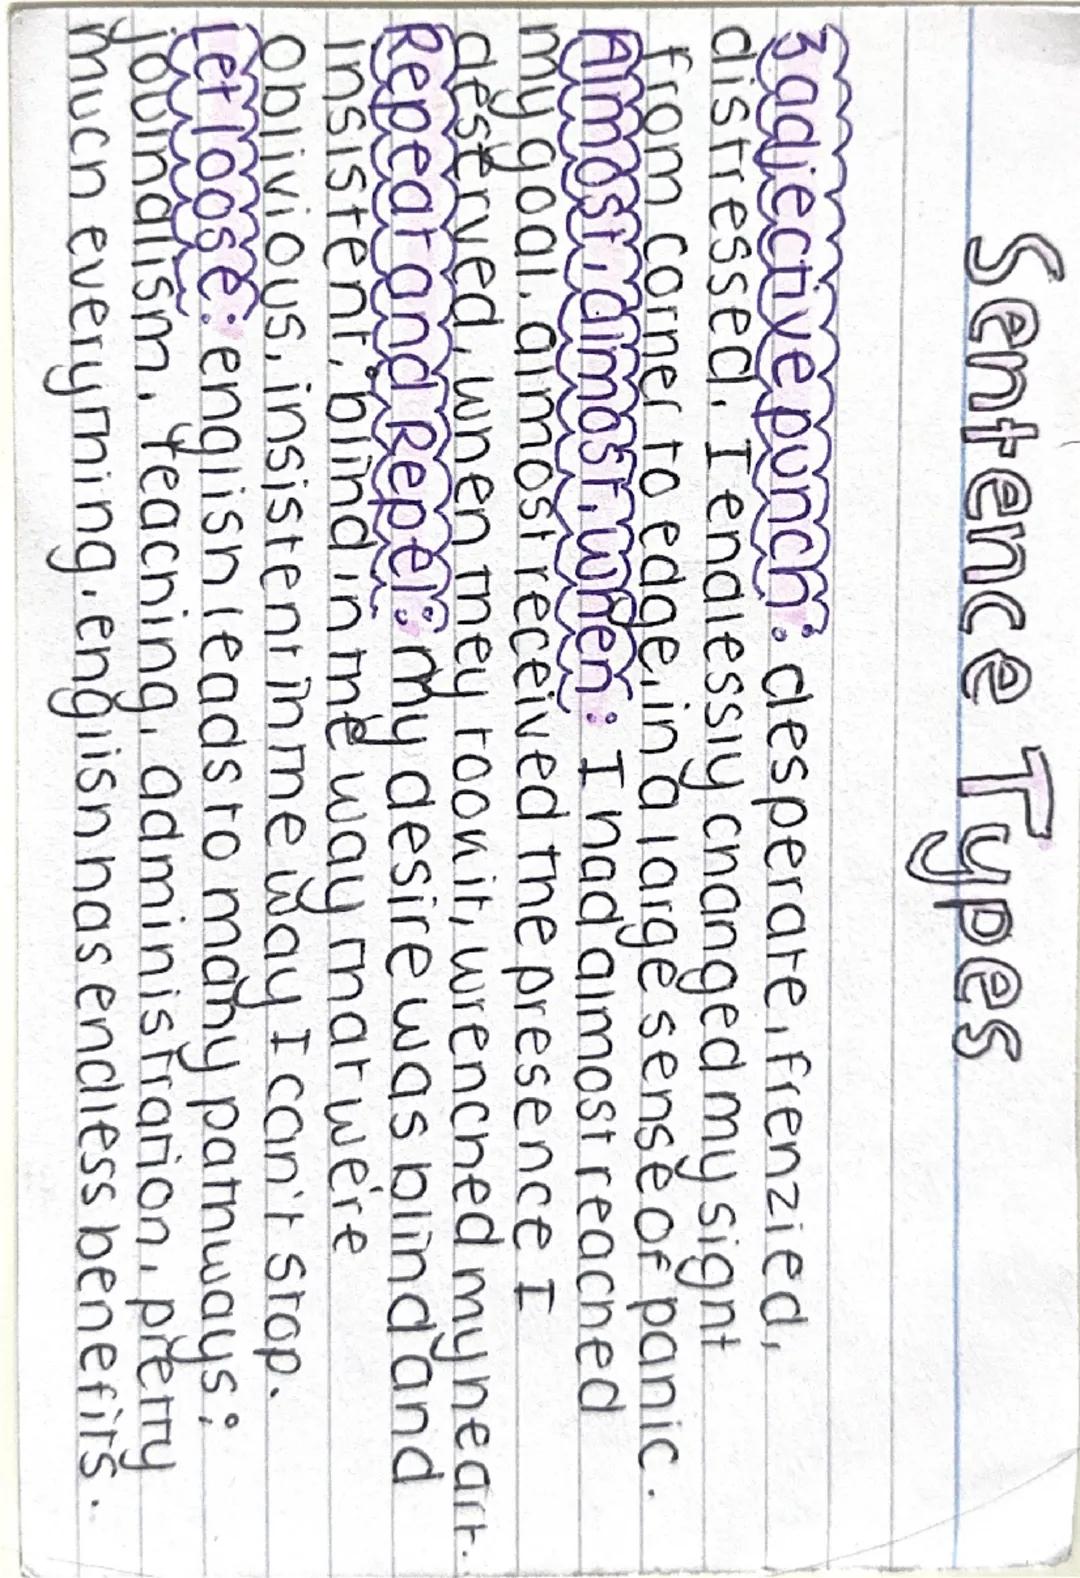 Sentence Types
3 adjective punch: desperate, frenzied,
distressed, I endlessly changed my sight
from corner to edge, in a large sense of panic.
Almost, almost, when: I had almost reached
my goal, almost received the presence I
deserved, when they took it, wrenched my heart.
Repeat and Repel: my desire was blind and
insistent, blind in the way that we're
oblivious, insistent in the way I can't stop.
Let loose: english leads to many pathways;
journalism, teaching, administration, pretty
much everything, english has endless benefits.